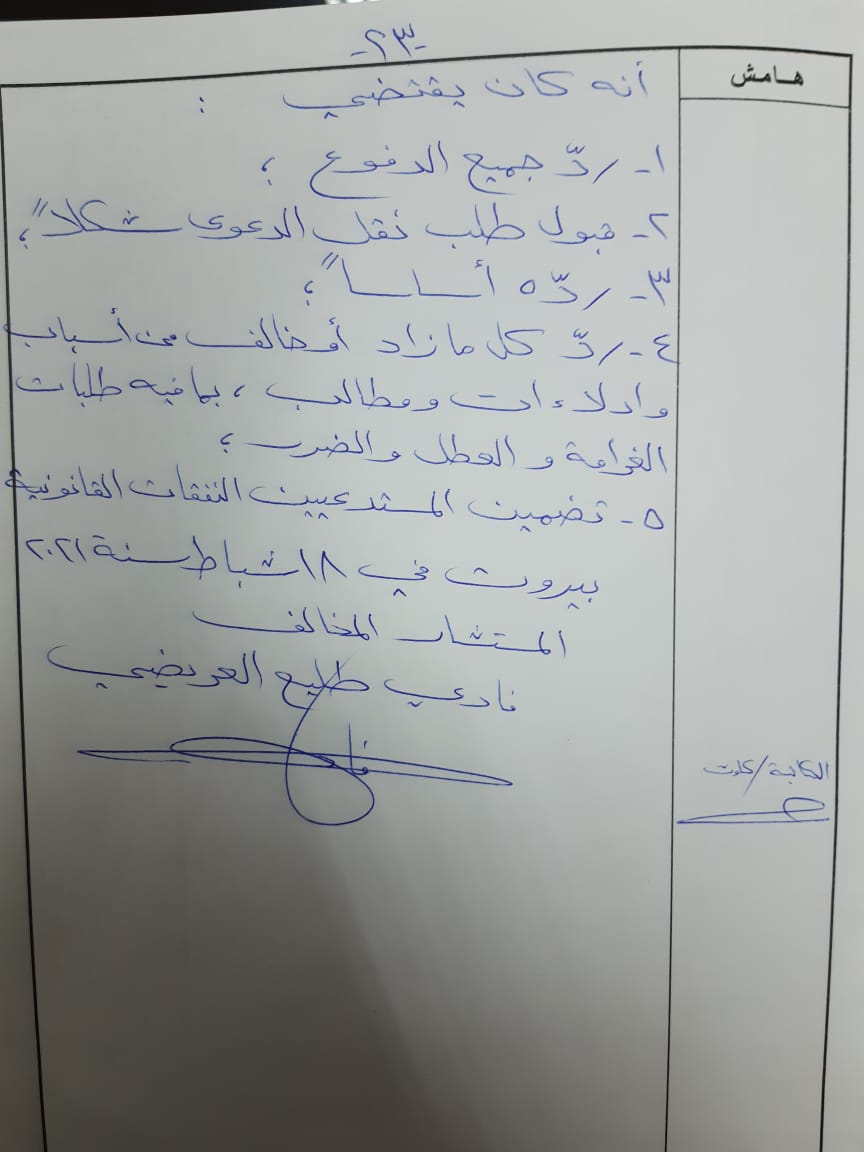 -٢٣-
هامش
أنه كان يقتضي :
١- ردّ جميع الدفوع ؛
٢- قبول طلب نقل الدعوى شكلاً ؛
٣- ردّه أساساً ؛
٤- ردّ كل ما زاد أو خالف من أسباب
وادلاءات ومطالب ، بما فيه طلبات
الغرامة و العطل والضرر ؛
٥- تضمين المستدعيين النفقات القانونية
بيروت في ١٨ شباط سنة ٢٠٢١
المستشار المخالف
فادي طليع العريضي
الكاتبة/